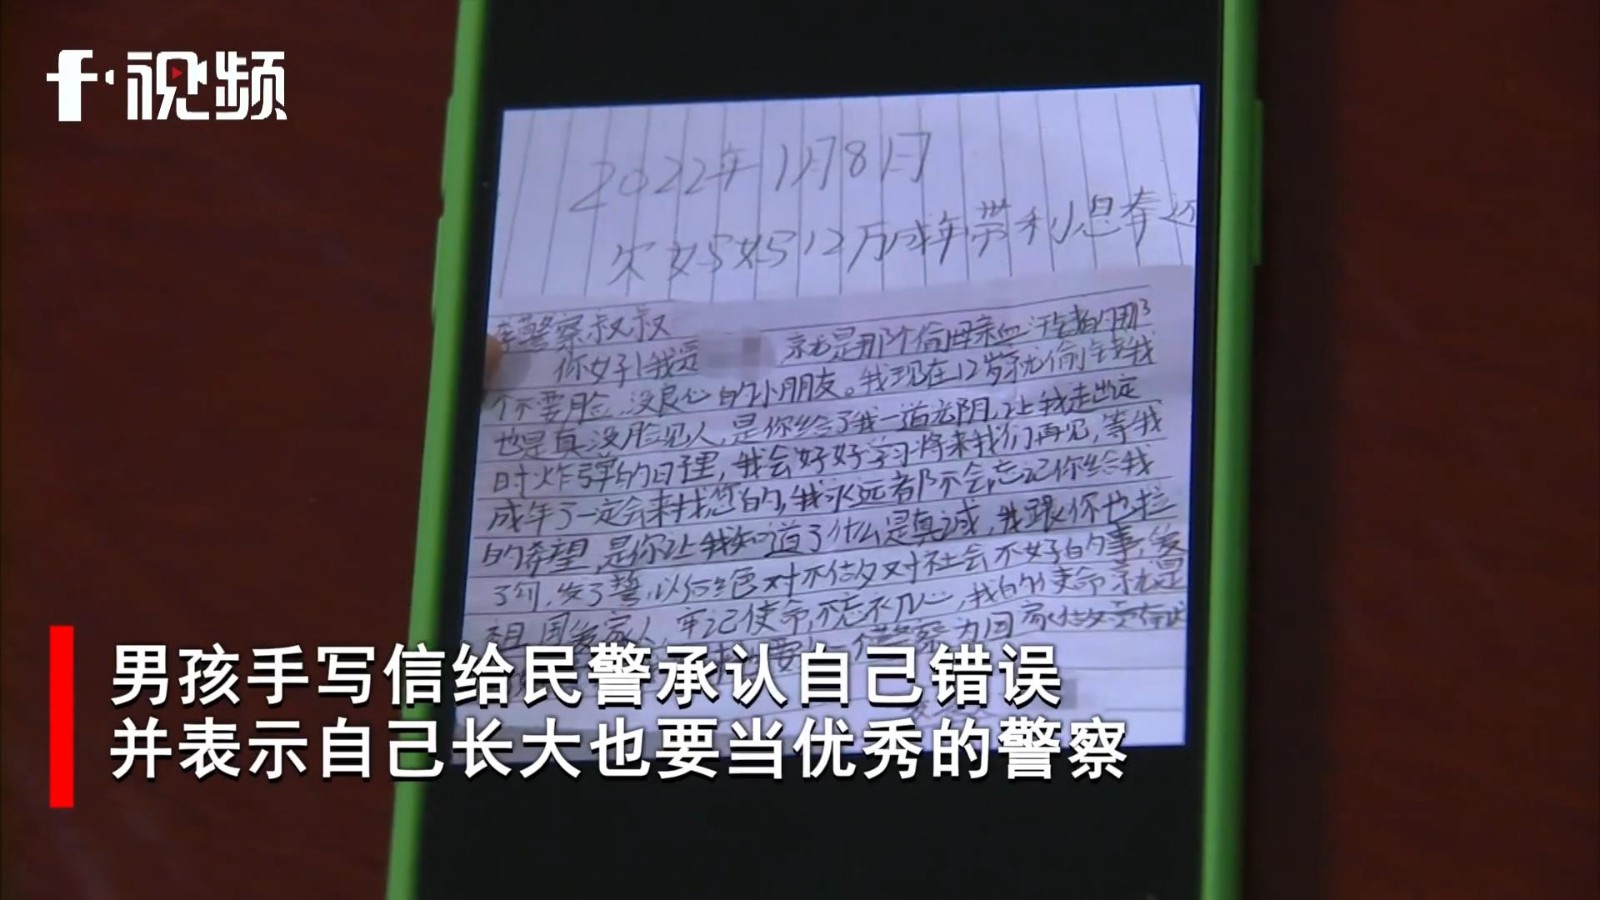 f·视频
2022年1月8日
欠妈妈12万成年带利息奉还
警察叔叔
你好!我是 就是那个偷母亲血汗钱的那
个不要脸,没良心的小朋友。我现在12岁就偷钱我
也是真没脸见人,是你给了我一道光阴,让我走出定
时炸弹的日里,我会好好学习将来我们再见,等我
成年了一定会来找您的,我永远都不会忘记你给我
的希望,是你让我知道了什么是真诚,我跟你也拉
了勾,发了誓,以后绝对不做对社会不好的事,爱
祖国爱家人,牢记使命,不忘初心,我的使命就是
要 警察为国家做
男孩手写信给民警承认自己错误
并表示自己长大也要当优秀的警察